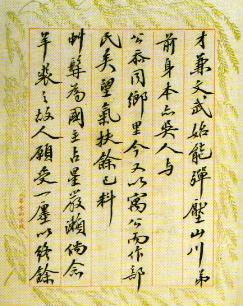 才兼文武始能彈壓山川弟
前身本亦吳人与
公忝同鄉里今又以寓公而作部
民矣望氣扶餘已料
虯髯為國主占星嚴瀨倘念
羊裘之故人願受一廛以終餘